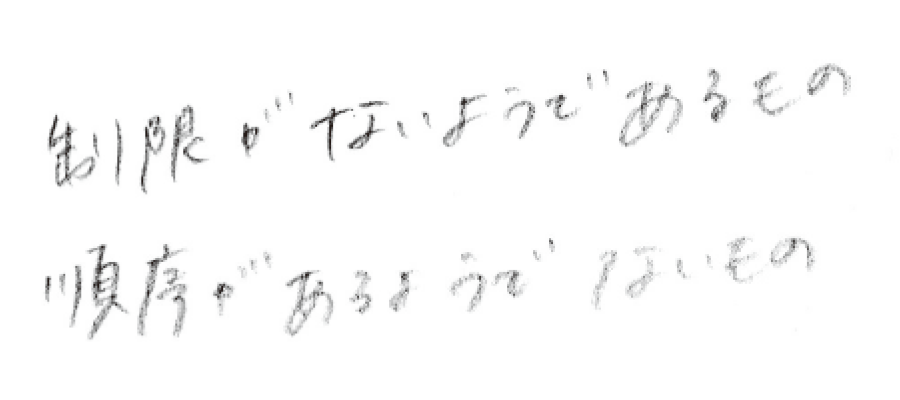 制限がないようであるもの
順序があるようでないもの